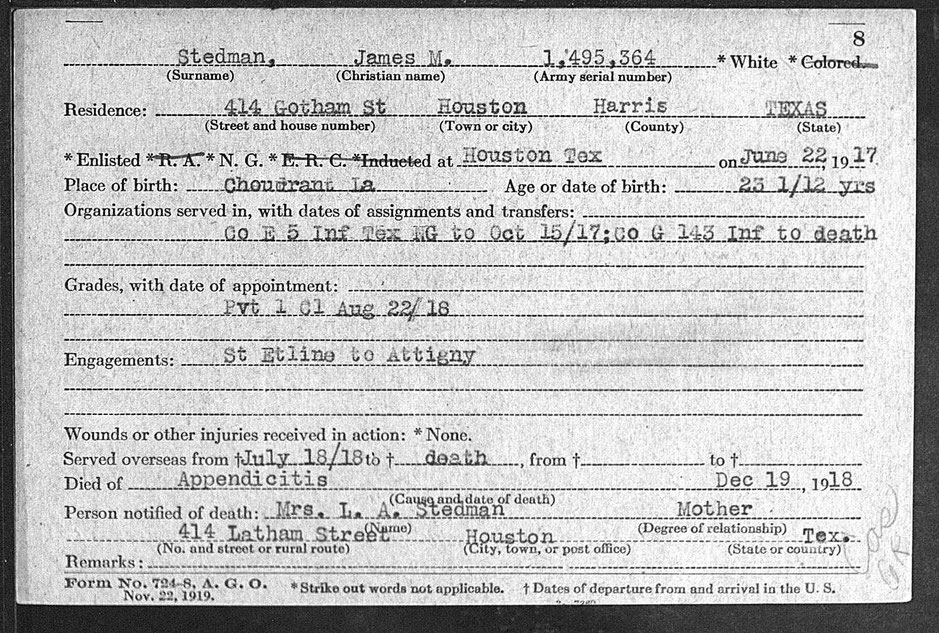 8
Stedman, James M. 1,495,364 * White * Colored.
(Surname) (Christian name) (Army serial number)
Residence: 414 Gotham St Houston Harris TEXAS
(Street and house number) (Town or city) (County) (State)
* Enlisted * R. A. * N. G. * E. R. C. *Inducted at Houston Tex on June 22, 1917
Place of birth: Choudrant La Age or date of birth: 23 1/12 yrs
Organizations served in, with dates of assignments and transfers:
Co E 5 Inf Tex NG to Oct 15/17; Co G 143 Inf to death
Grades, with date of appointment:
Pvt 1 Cl Aug 22/18
Engagements: St Etline to Attigny
Wounds or other injuries received in action: * None.
Served overseas from † July 18/18 to † death, from † to †
Died of Appendicitis Dec 19, 1918
(Cause and date of death)
Person notified of death: Mrs. L. A. Stedman Mother
(Name) (Degree of relationship)
414 Latham Street Houston Tex.
(No. and street or rural route) (City, town, or post office) (State or country)
Remarks:
Form No. 724-8, A. G. O. * Strike out words not applicable. † Dates of departure from and arrival in the U. S.
Nov. 22, 1919.